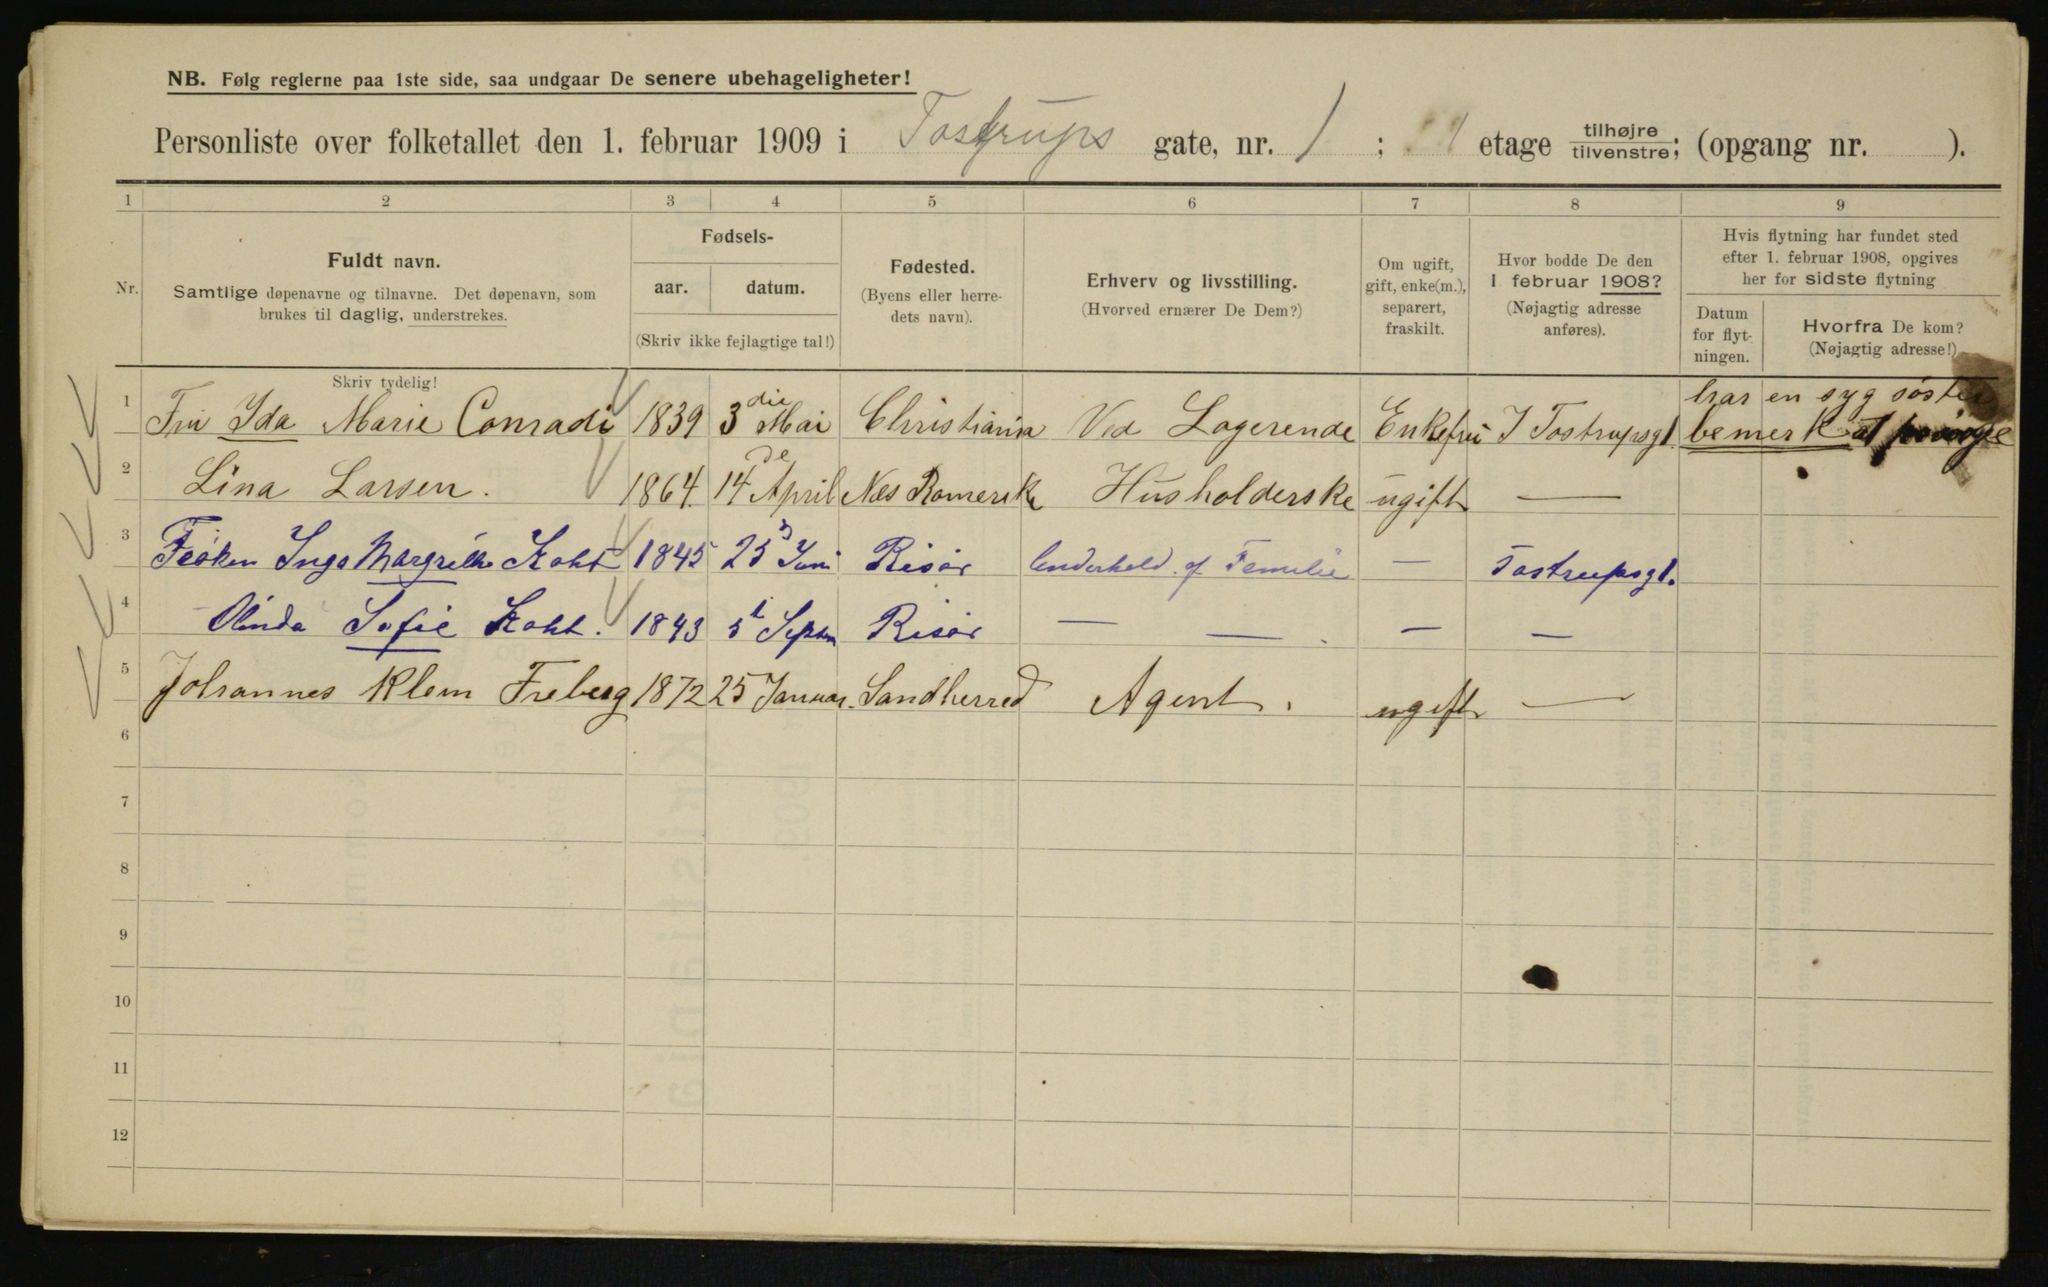 NB. Følg reglerne paa 1ste side, saa undgaar De senere ubehageligheter!
Personliste over folketallet den 1. februar 1909 i Tostrups gate, nr. 1 ; 1 etage tilhøjre tilvenstre; (opgang nr. ).
1 2 3 4 5 6 7 8 9
Nr.
Fuldt navn.
Samtlige døpenavne og tilnavne. Det døpenavn, som
brukes til daglig, understrekes.
Skriv tydelig!
Fødsels-
aar. datum.
(Skriv ikke fejlagtige tal!)
Fødested.
(Byens eller herre-
dets navn).
Erhverv og livsstilling.
(Hvorved ernærer De Dem?)
Om ugift,
gift, enke(m.),
separert,
fraskilt.
Hvor bodde De den
1 februar 1908?
(Nøjagtig adresse
anføres).
Hvis flytning har fundet sted
efter 1. februar 1908, opgives
her for sidste flytning
Datum
for flyt-
ningen.
Hvorfra De kom?
(Nøjagtig adresse!)
har en syg søster
1 Fru Ida Marie Conradi 1839 3die Mai Christiania Ved Logerende Enkefru I Tostrupsgt. bemerk at
2 Lina Larsen. 1864. 14de April Nes Romerike Husholderske ugift —
3 Frøken Inga Margrethe Koht 1845 23 Juni Risør Underhold af Familie — Tostrupsgt.
4 Sofie Koht. 1843 5t Septem Risør — — — —
5 Johannes Klem Freberg 1872 25 Januar. Sandherred Agent. ugift —
6
7
8
9
10
11
12